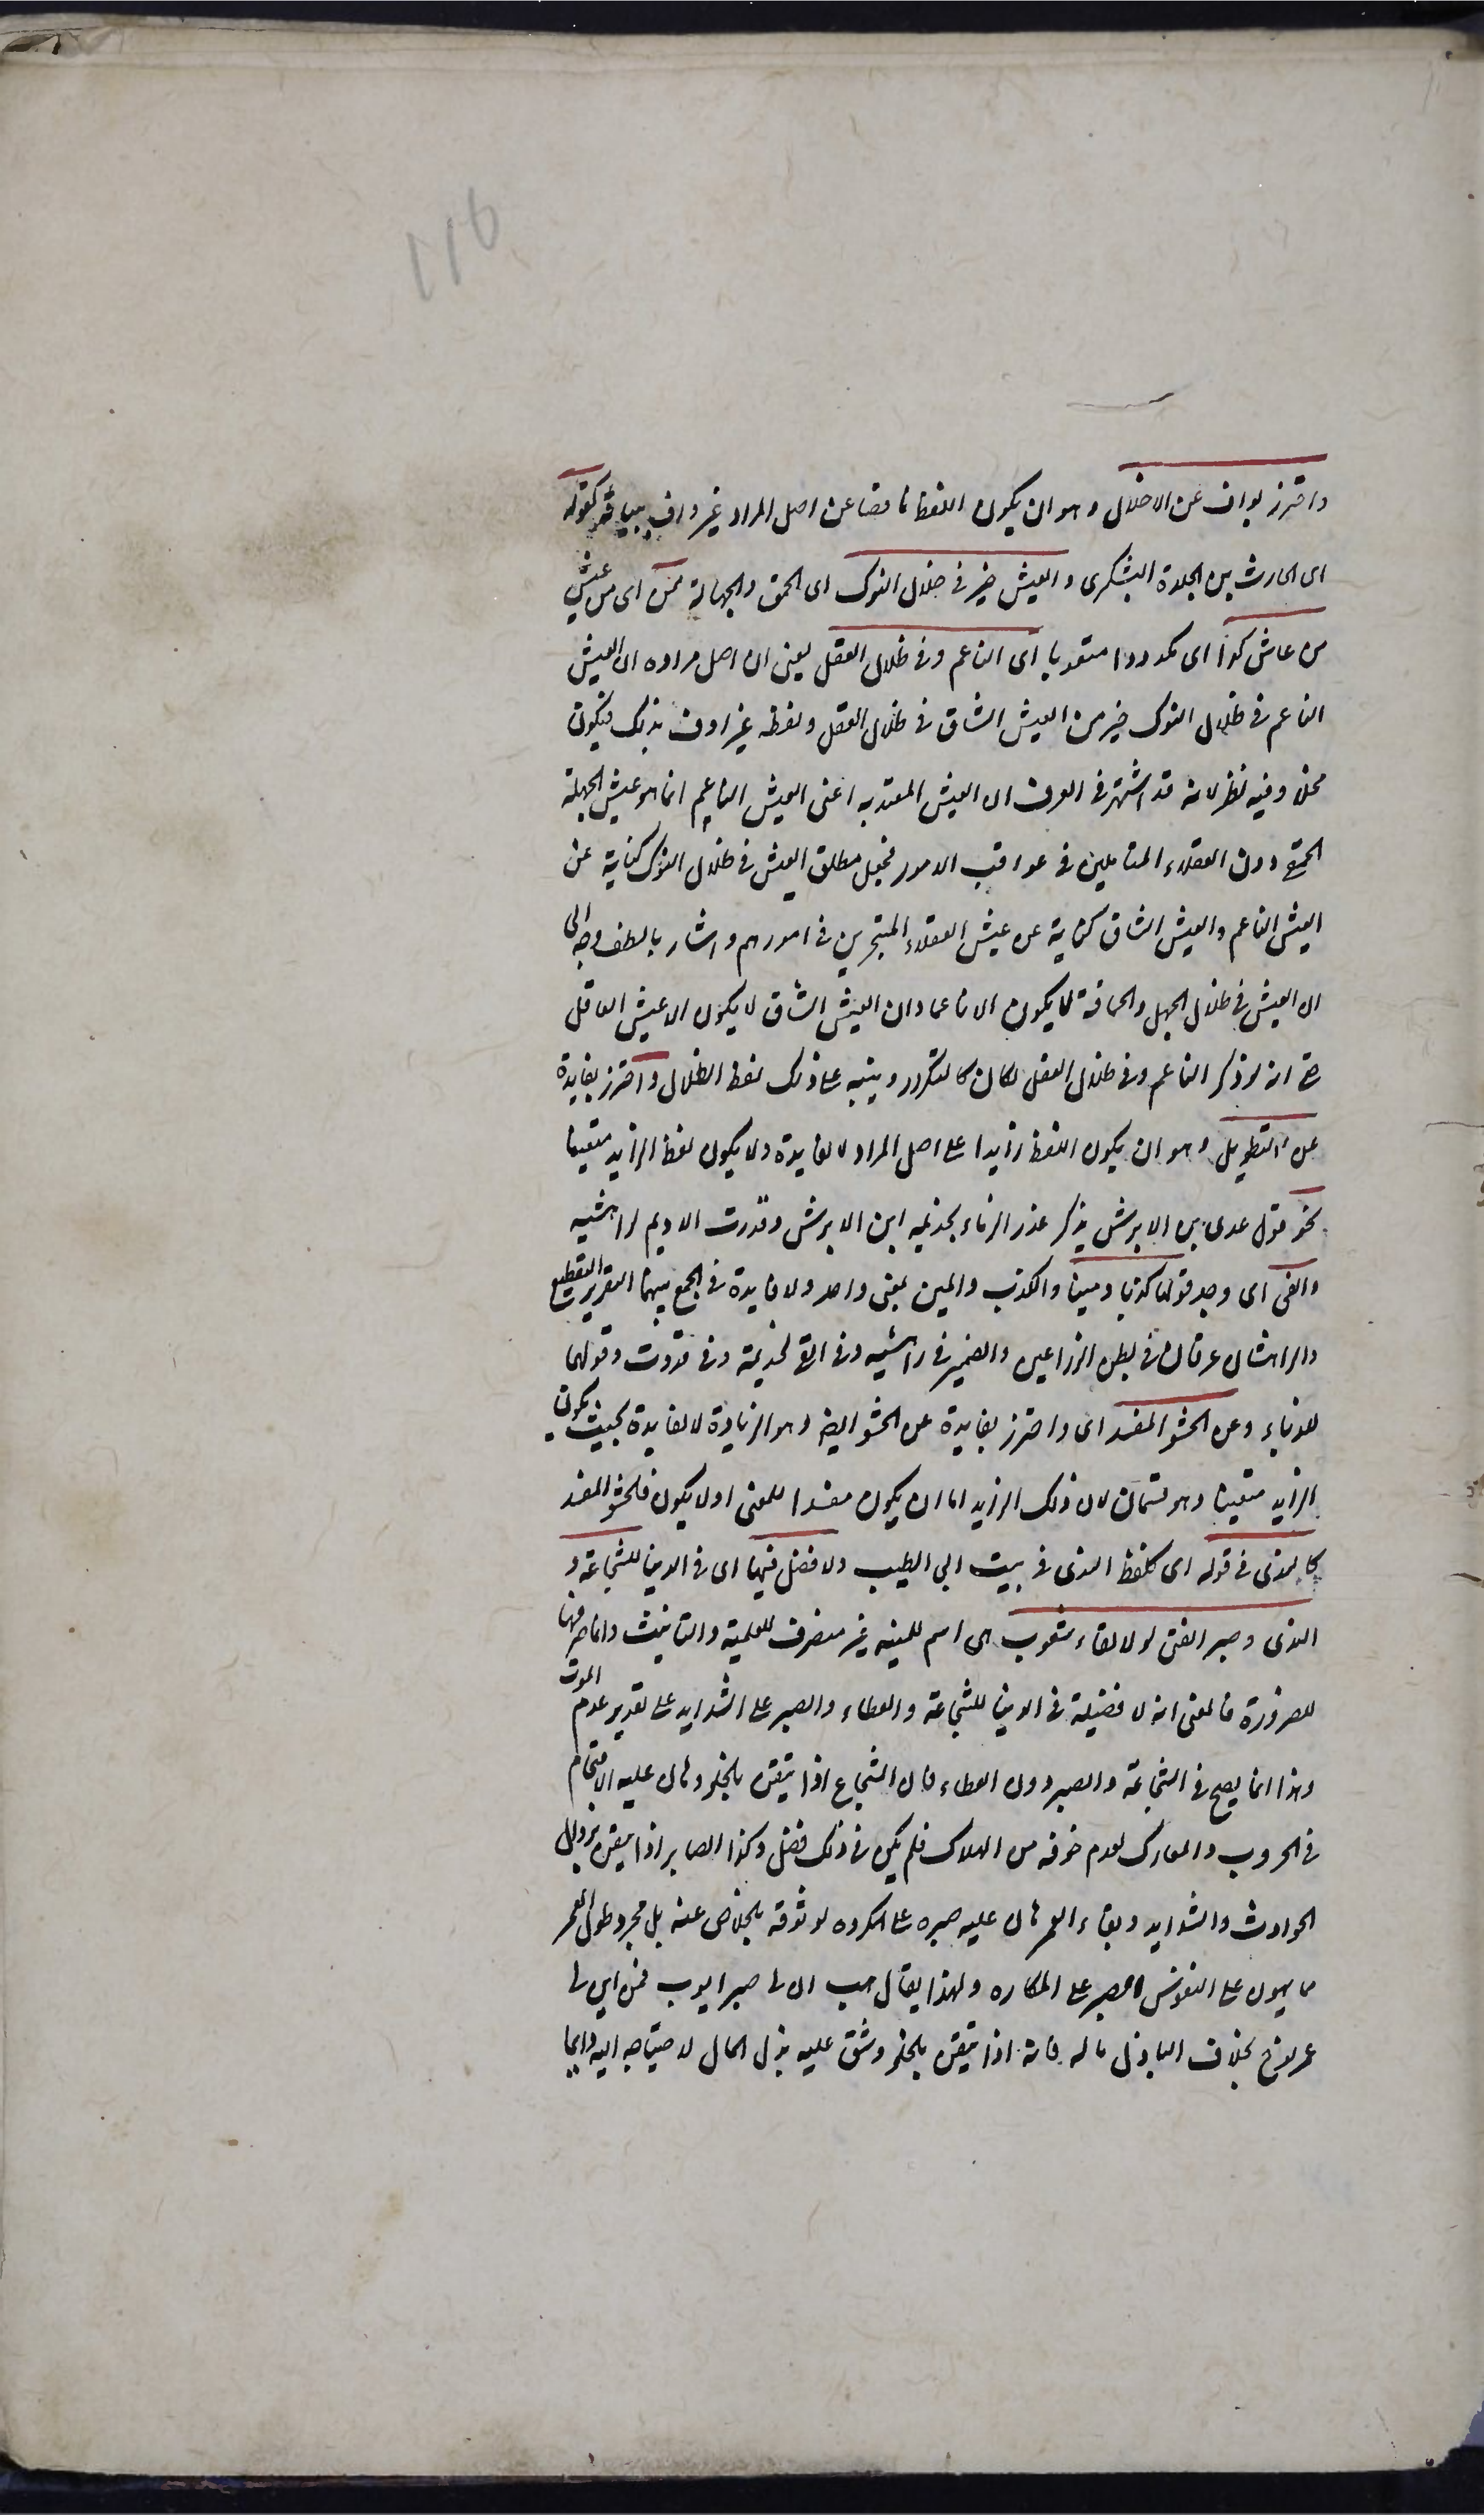 116
واحترز بواف عن الاخلال وهو ان يكون اللفظ ناقصا عن اصل المراد غير واف ببيانه كقوله
اى الحارث بن الجلدة اليشكرى والعيش خير فى ظلال النوك اى الحمق والجهالة ممن اى من عيش
من عاش كدا اى مكدودا متعوبا اى الناعم وفى ظلال العقل يعنى ان اصل مراده ان العيش
الناعم فى ظلال النوك خير من العيش الشاق فى ظلال العقل ولفظه غير واف بذلك فيكون
مخلا وفيه نظر لانه قد اشتهر فى العرف ان العيش المعتد به اعنى العيش الناعم انما هو عيش الجهلة
الحمقى دون العقلاء المتأملين فى عواقب الامور فجعل مطلق العيش فى ظلال النوك كناية عن
العيش الناعم والعيش الشاق كناية عن عيش العقلاء المتحيرين فى امورهم واشار بالطف وجه الى
ان العيش فى ظلال الجهل والحماقة لا يكون الا ناعما وان العيش الشاق لا يكون الا عيش العاقل
حتى انه لو ذكر الناعم وفى ظلال العقل لكان كالتكرر وينبه على ذلك لفظ الظلال واحترز بفايدة
عن التطويل وهو ان يكون اللفظ زايدا على اصل المراد لا لفايدة ولا يكون لفظ الزايد متعينا
نحو قول عدى بن الابرش يذكر غدر الزباء بجذيمه ابن الابرش وقدرت الاديم لراهشيه
والفى اى وجد قولها كذبا ومينا والكذب والمين بمعنى واحد ولا فايدة فى الجمع بينهما التقرير التقطيع
والراهشان عرقان فى بطن الذراعين والضمير فى راهشيه وفى الفى لجذيمة وفى قددت وقولها
للزباء وعن الحشو المفسد اى واحترز بفايدة عن الحشو ايضا وهو الزيادة لا لفايدة بحيث يكون
الزايد متعينا وهو قسمان لان ذلك الزايد اما ان يكون مفسدا للمعنى اولا يكون فالحشو المفسد
كالندى فى قوله اى كلفظ الندى فى بيت ابى الطيب ولا فضل فيها اى فى الدنيا للشجاعة و
الندى وصبر الفتى لولا لقاء شعوب هى اسم للمنيه غير منصرف للعلمية والتانيث وانما صرفها
للضرورة فالمعنى انه لا فضيلة فى الدنيا للشجاعة والعطاء والصبر على الشدايد على تقدير عدم الموت
وهذا انما يصح فى الشجاعة والصبر دون العطاء فان الشجاع اذا تيقن بالخلود هان عليه الاقتحام
فى الحروب والمعارك لعدم خوفه من الهلاك فلم يكن فى ذلك فضل وكذا الصابر اذا تيقن بزوال
الحوادث والشدايد وبقاء العمر هان عليه صبره على المكروه لوثوقه بالخلاص عنه بل مجرد طول العمر
مما يهون على النفوس الصبر على المكاره ولهذا يقال هب ان لى صبر ايوب فمن اين لى
عمر نوح بخلاف الباذل ماله فانه اذا تيقن بالخلود شق عليه بذل المال لاحتياجه اليه دايما